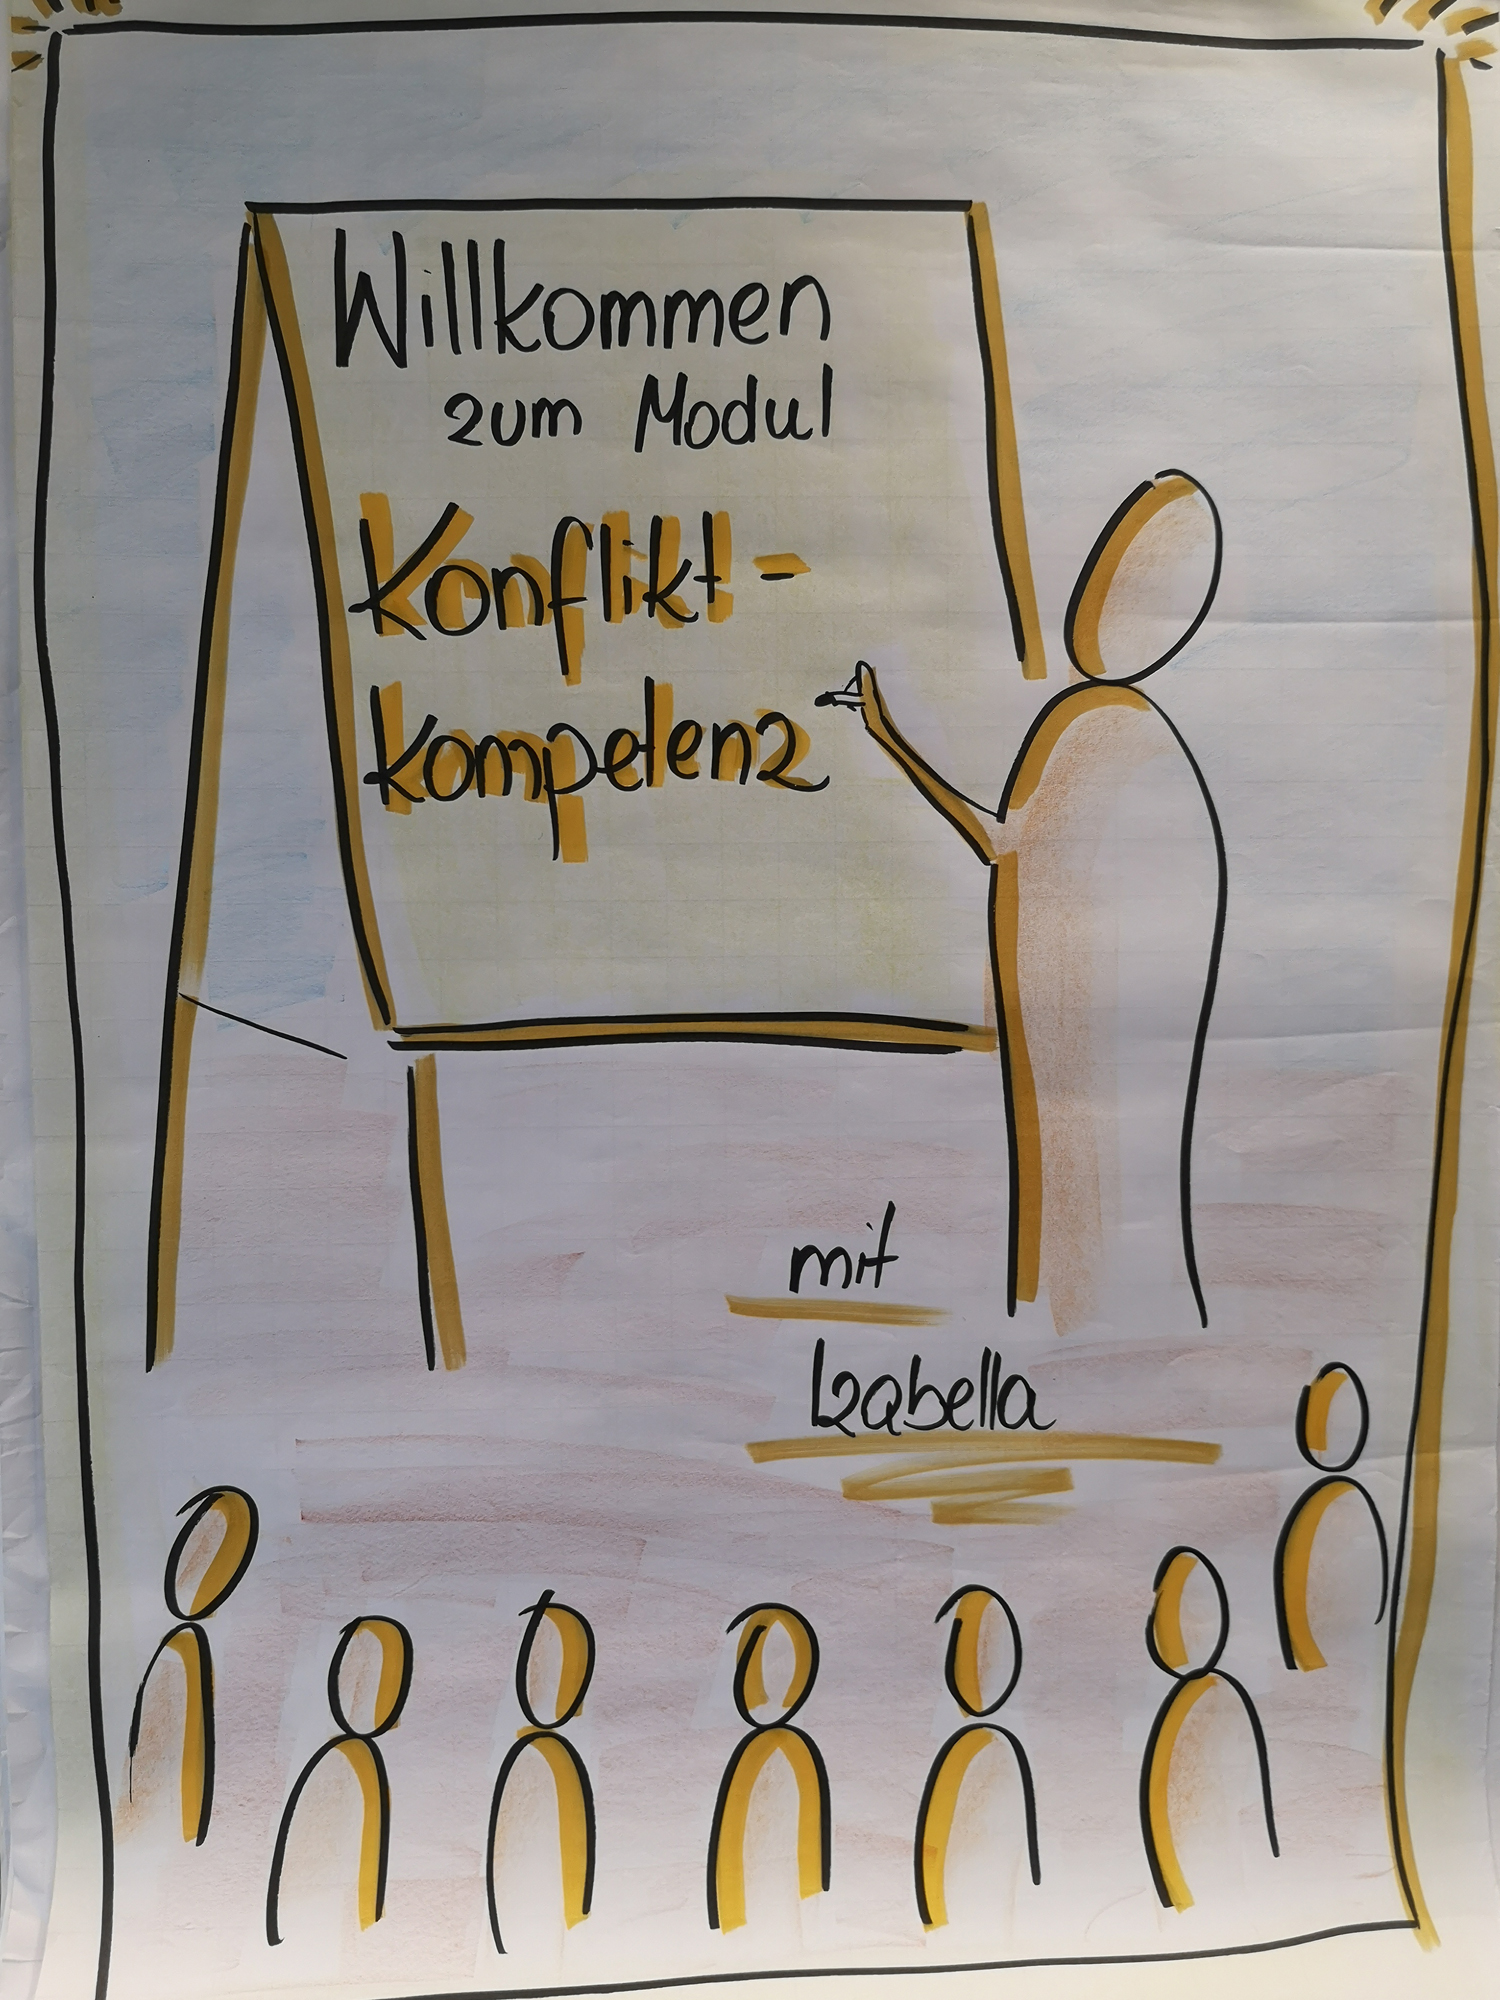 Willkommen
zum Modul
Konflikt-
kompetenz
mit
Izabella